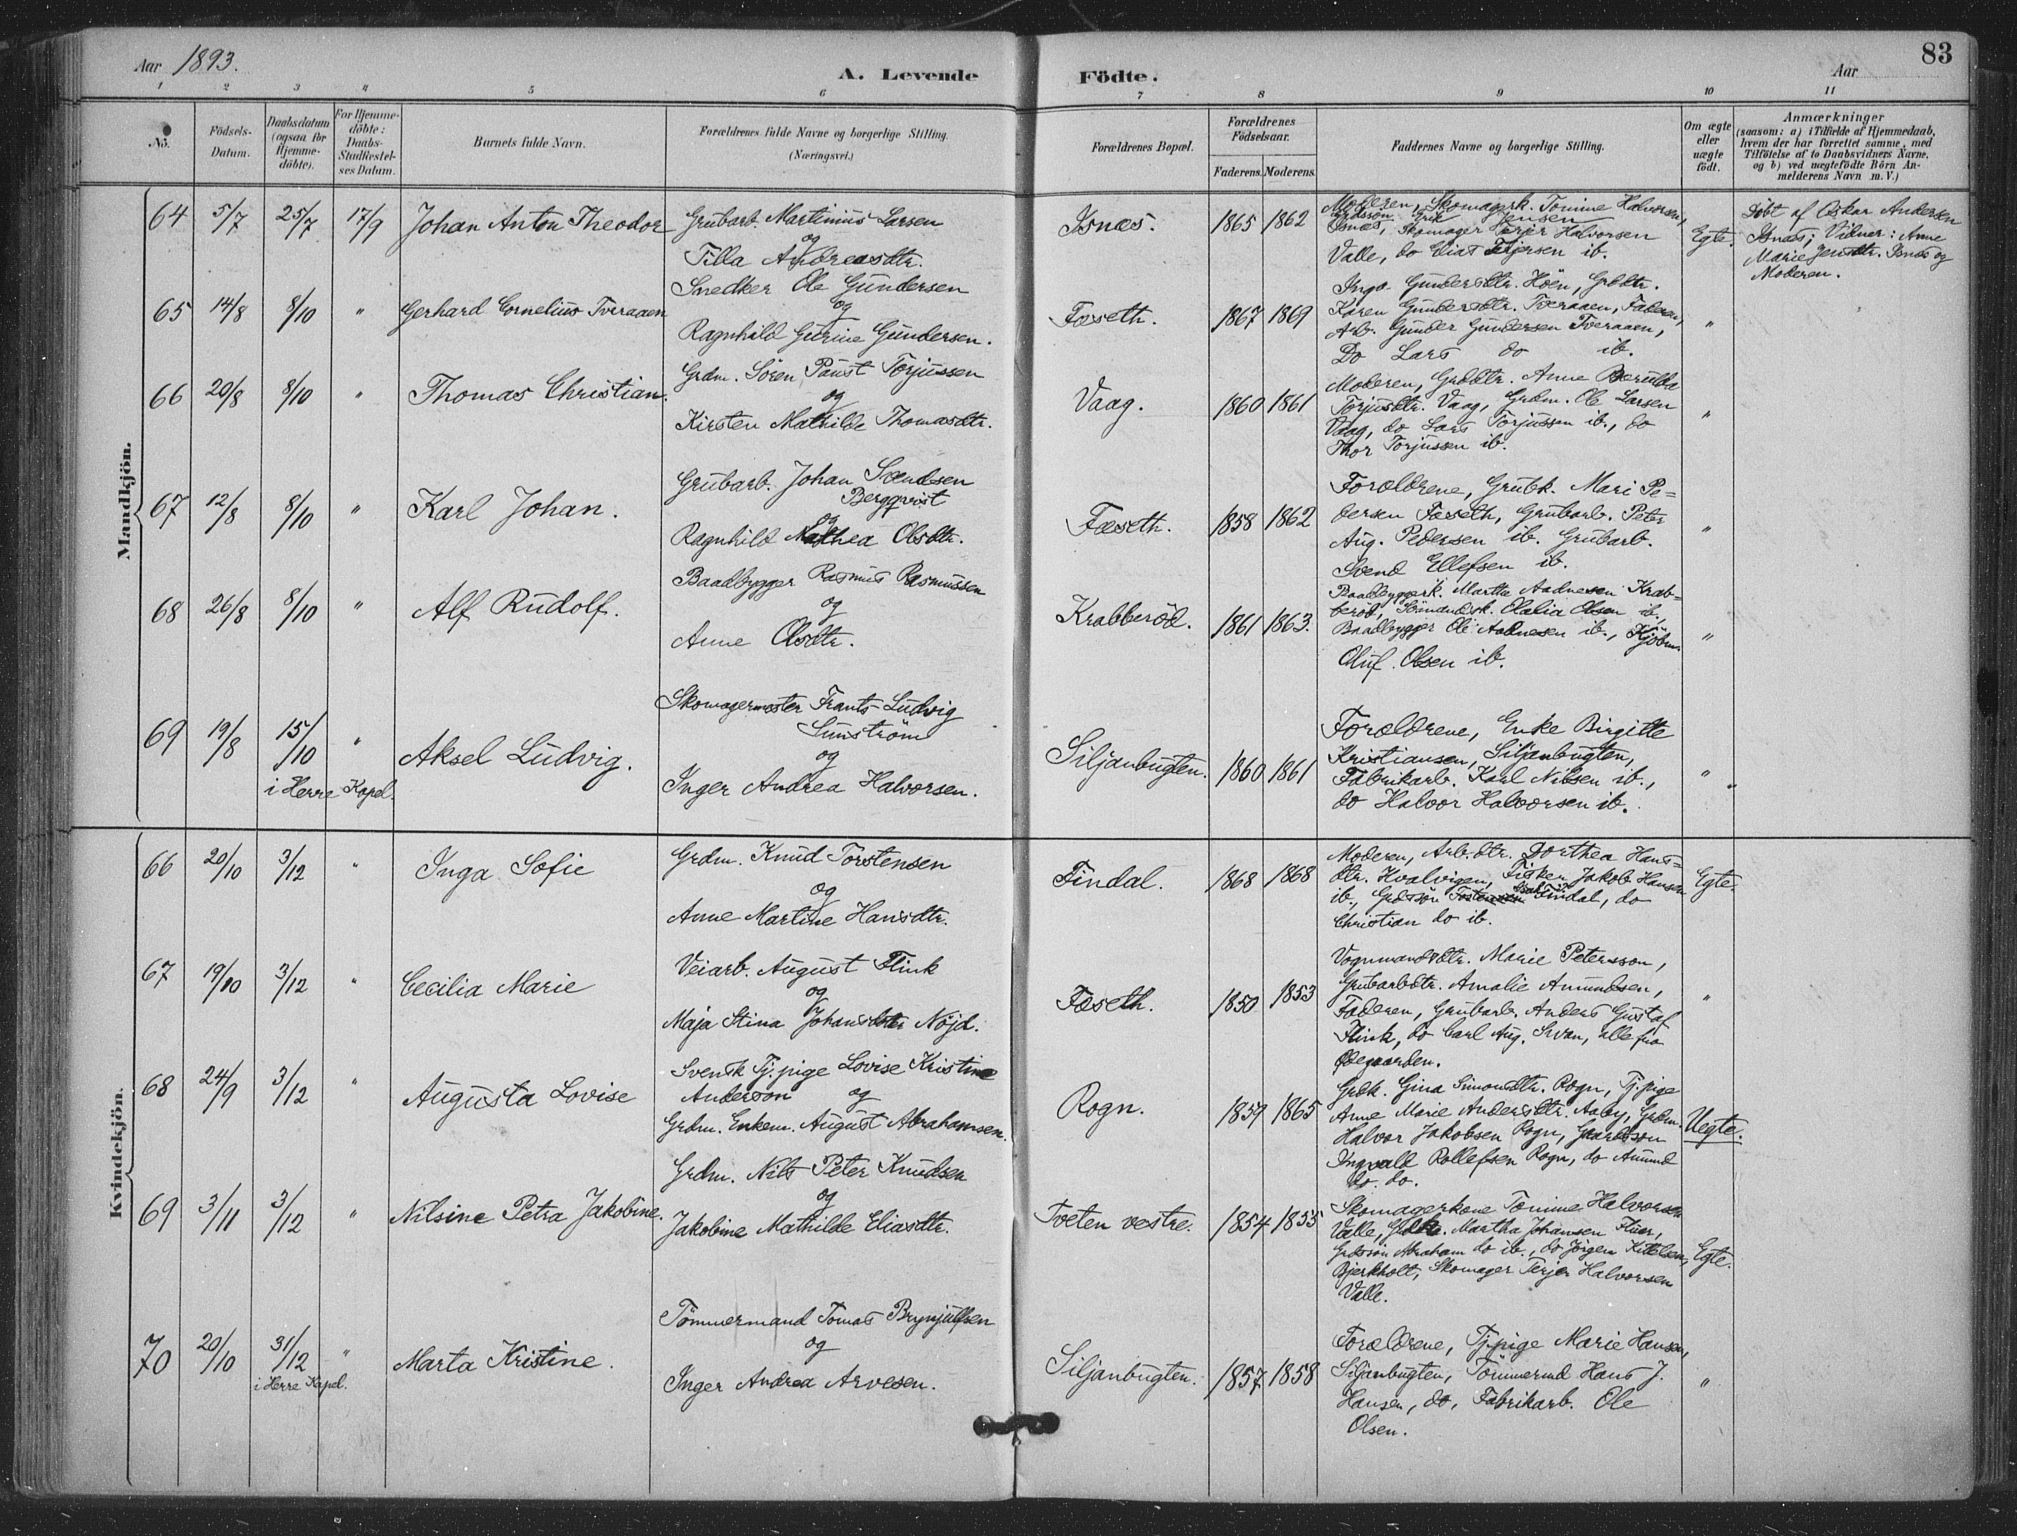 Aar 1893.
A. Levende Födte.
Aar
83
1 2 3 4 5 6 7 8 9 10 11
No.
Födsels-Datum.
Daabsdatum (ogsaa for Hjemmedöbte).
For Hjemmedöbte: Daabs-Stadfæstelses Datum.
Barnets fulde Navn.
Forældrenes fulde Navne og borgerlige Stilling. (Næringsvei.)
Forældrenes Bopæl.
Forældrenes Födselsaar.
Faderens. Moderens.
Faddernes Navne og borgerlige Stilling.
Om ægte eller uægte födt.
Anmærkninger
(saasom: a) i Tilfælde af Hjemmedaab, hvem der har forrettet samme, med Tilföielse af to Daabsvidners Navne, og b) ved uægtefödte Börn Anmelderens Navn m. V.)
Mandkjön.
64 5/7 25/7 17/9 Johan Anton Theodor
Grubarb. Martinius Larsen
og
Tilla Andreasdtr.
Isnæs. 1865 1862
Moderen, Skomagerk. Tomine Halvorsen,
Isnæs, Skomager Terjer Halvorsen
Valle, do Elias Terjersen ib.
Egte.
Döbt af Oskar Andersen
Isnæs; Vidner: Anne
Marie Jensdtr. Isnæs og
Moderen.
65 14/8 8/10 " Gerhard Cornelius Tveraaen
Snedker Ole Gundersen
og
Ragnhild Gurine Gundersen.
Fæseth. 1867 1869
Inga Gundersdtr. Höen, Grdtr.
Karen Gundersdtr. Tveraaen, Faderen,
Arb. Gunder Gundersen Tveraaen,
Do Lars do ib.
"
66 20/8 8/10 " Thomas Christian.
Grdm. Sören Paust Torjussen
og
Kirsten Mathilde Thomasdtr.
Vaag. 1860 1861
Moderen, Grddtr. Anne Berulda
Torjusdtr. Vaag, Grdm. Ole Larsen
Vaag, do Lars Torjussen ib., do
Thor Torjussen ib.
"
67 12/8 8/10 " Karl Johan.
Grubarb. Johan Svendsen
Bergqvist
og
Ragnhild Mathea Olsdtr.
Fæseth. 1858 1862
Forældrene, Grubk. Mari Pe-
dersen Fæseth, Grubarb. Peter
Aug. Pedersen ib. Grubarb.
Svend Ellefsen ib.
"
68 26/8 8/10 " Alf Rudolf.
Baadbygger Rasmus Rasmussen
og
Anne Olsdtr.
Krabberöd. 1861 1863.
Baadbyggerk. Martha Aadnesen Krab-
beröd, Sömandsk. Olalia Olsen ib,
Baadbygger Ole Aadnesen ib., Kjöbm.
Oluf Olsen ib.
"
69 19/8 15/10 " Aksel Ludvig.
i Herre Kapel.
Skomagermester Frants Ludvig
Sunström
og
Inger Andrea Halvorsen.
Siljanbugten. 1860 1861
Forældrene, Enke Birgitte
Kristiansen, Siljanbugten,
Fabrikarb. Karl Nilsen ib.,
do Halvor Halvorsen ib.
"
Kvindekjön.
66 20/10 3/12 " Inga Sofie
Grdm. Knud Torstensen
og
Anne Martine Hansdtr.
Findal. 1868 1868
Moderen, Arb.dtr. Dorthea Hans-
dtr. Kvalvigen, Fisker Jakob Hansen
ib., Grdssön Findal, do
Christian do ib.
Egte.
67 19/10 3/12 " Cecilia Marie
Veiarb. August Flink
og
Maja Stina Johansdtr Nöjd.
Fæseth. 1850 1853
Vognmandsdtr. Marie Petersson,
Grubarbdtr. Amalie Amundsen,
Faderen, Grubarb. Anders Gustaf
Flink, do Carl Aug. Svan, alle fra
Ödegaarden.
"
68 24/9 3/12 " Augusta Lovise
Svensk Tj.pige Lovise Kristine
Anderson og
Grdm. Enkem. August Abrahamsen.
Rogn. 1859 1865
Grdk. Gina Simonsdtr. Rogn, Tj.pige
Anne Marie Andersdtr. Aaby, Grdm.
Halvor Jakobsen Rogn, Gaardssön
Ingvald Rollefsen Rogn, do Amund
do. do.
Uegte.
69 3/11 3/12 " Nilsine Petra Jakobine.
Grdm. Nils Peter Knudsen
og
Jakobine Mathilde Eliasdtr.
Tveten vestre. 1854 1855
Skomagerkone Tomine Halvorsen
Valle, Grdk. Martha Johansen Fluer,
Grdssön Abraham do ib., do Jörgen Kittelsen,
Bjerkholt, Skomager Terjer Halvorsen
Valle.
Egte.
70 20/10 31/12 " Marta Kristine.
i Herre Kapel.
Tömmermand Tomas Brynjulfsen
og
Inger Andrea Arvesen.
Siljanbugten. 1857 1858
Forældrene, Tj.pige Marie Hansen,
Siljanbugten, Tömmermd Hans J.
Hansen, do, Fabrikarb. Ole
Olsen.
"